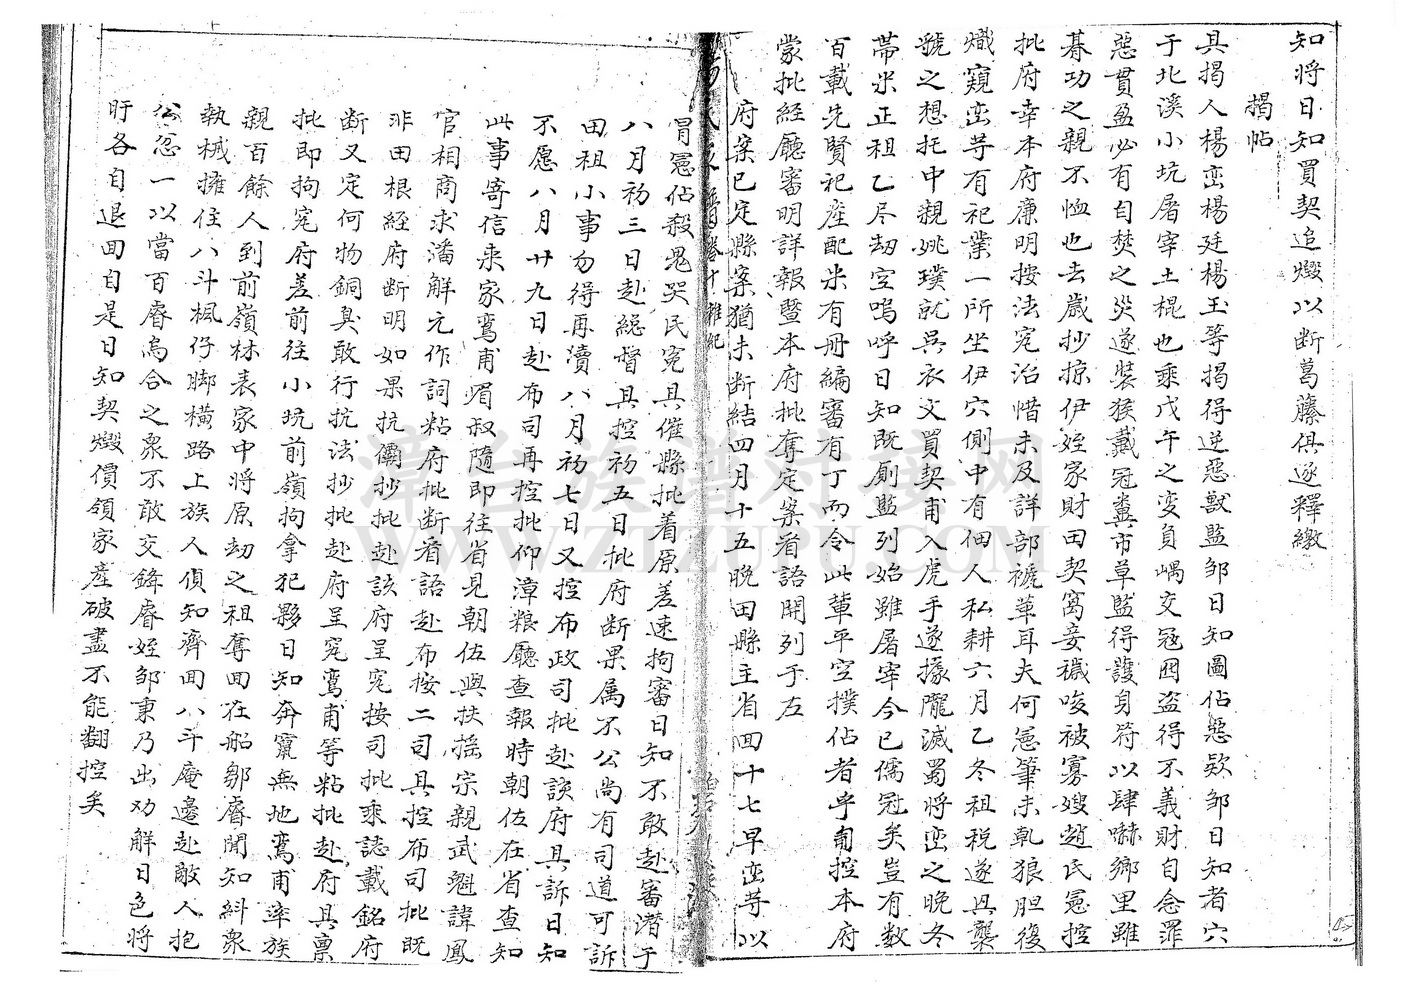 知將日知買契追燬以斷葛藤俱遂釋繳
揭帖
具揭人楊巒楊廷楊玉等揭得逆惡獸監邹日知圖佔惡欵邹日知者穴
于北溪小坑屠宰土棍也乘戊午之变負嵎交冦囮盗得不義財自念罪
惡貫盈必有自焚之災遂裝猴戴冠糞市草監得護身符以肆嚇鄉里雖
朞功之親不恤也去歲抄掠伊姪家財田契窩妾穢唆被寡嫂趙氏冤控
批府幸本府廉明按法究治惜未及詳部褫革耳夫何冤筆未乹狼胆復
熾窺巒等有祀業一所坐伊穴側中有佃人私耕六月乙冬租税遂具襲
號之想托中親姚璞就吳衣文買契甫入虎手遂據隴滅蜀將巒之晚冬
蒂米正租乙尽刼空嗚呼日知既廁監列始雖屠宰今已儒冠矣豈有数
百載先賢祀產配米有冊編審有丁而令此輩平空撲佔者乎匍控本府
蒙批經廳審明詳報暨本府批奪定案看語開列于左
府案已定縣案猶未断結四月十五晚田縣主省回十七早巒等以
卷十雜紀
冐冤佔殺鬼哭民冤具催縣批着原差速拘審日知不敢赴審潜于
八月初三日赴總督具控初五日批府断果属不公尚有司道可訴
田租小事勿得再瀆八月初七日又控布政司批赴該府具訴日知
不愿八月廿九日赴布司再控批仰漳粮廳查報時朝佐在省查知
此事寄信来家鸞甫眉叔隨即往省見朝佐與扶摇宗親武魁諱鳳
官相商求潘解元作詞粘府批断看語赴布按二司具控布司批既
非田根経府断明如果抗覇抄批赴該府呈究按司批乘誌載銘府
断又定何物銅臭敢行抗法抄批赴府呈究鸞甫等粘批赴府具禀
批即拘究府差前往小坑前嶺拘拿犯夥日知奔竄無地鸞甫率族
親百餘人到前嶺林表家中將原刼之租奪回在船鄒睿聞知糾衆
執械擁住八斗楓仔脚横路上族人偵知齊回八斗庵邉赴敵人抱
公忿一以當百睿烏合之衆不敢交鋒睿姪邹秉乃出劝解日色將
旰各自退回自是日知契燬價領家產破盡不能翻控矣
漳台族谱对接网
WWW.ZTZUPU.COM